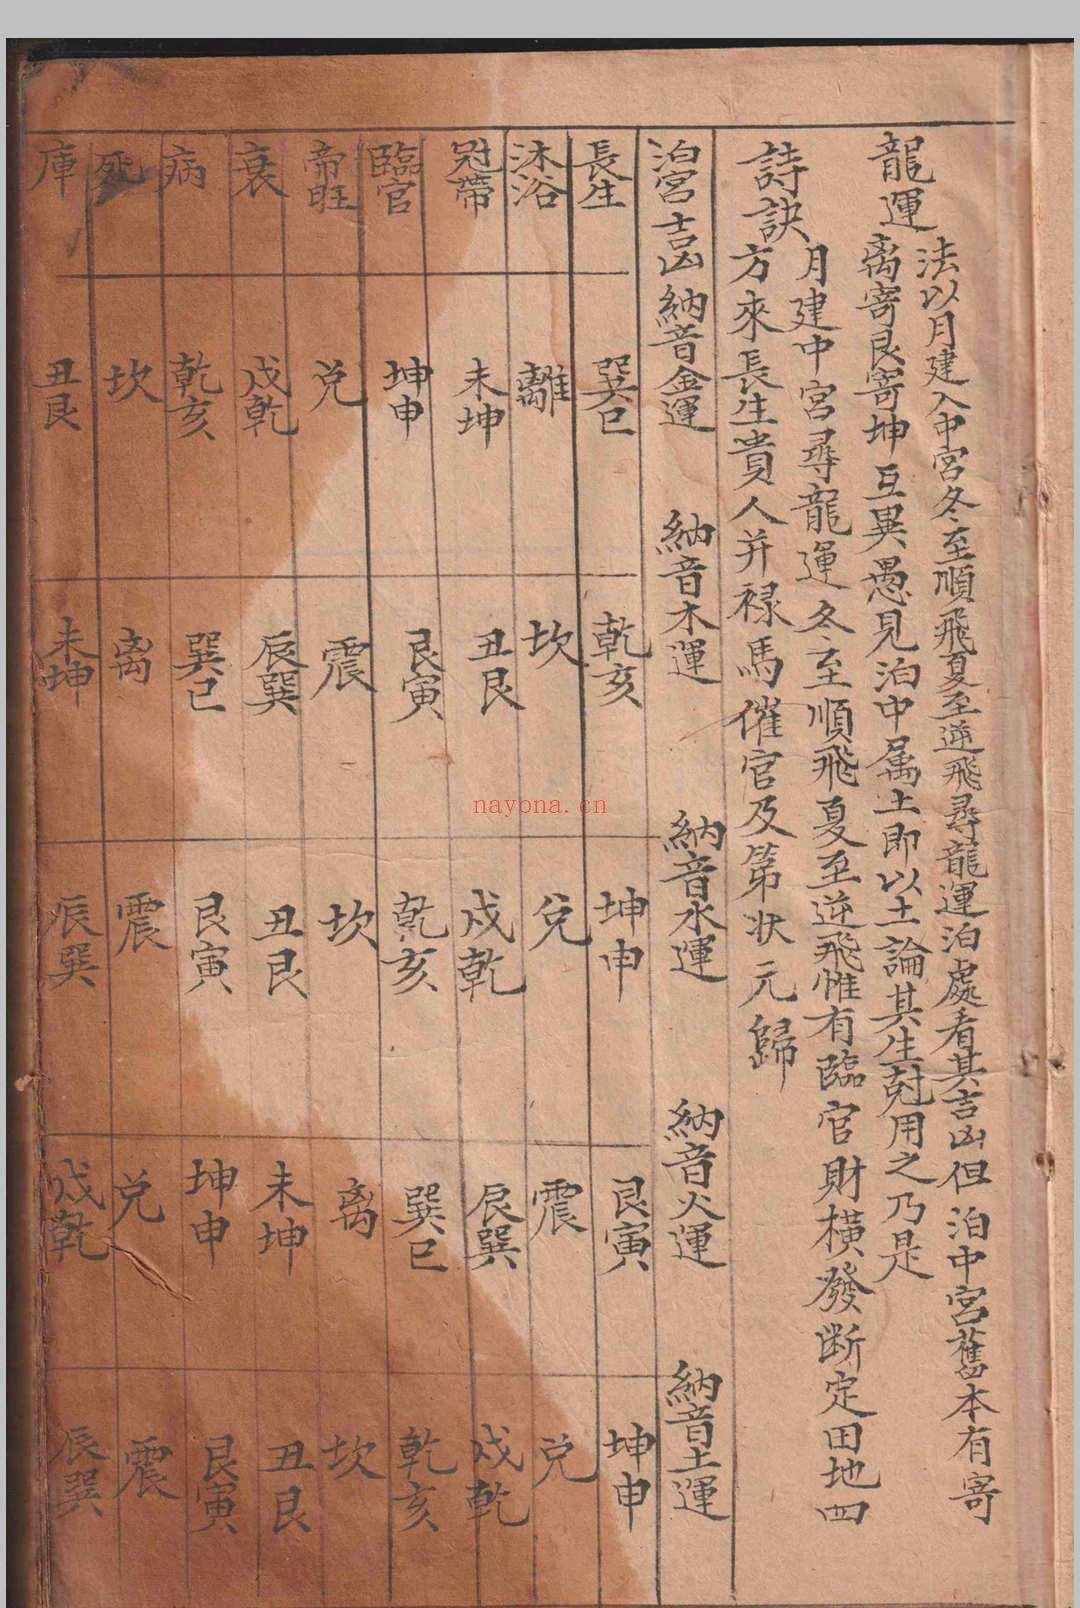 龍運
法以月建入中宮冬至順飛夏至逆飛尋龍運泊處看其吉凶但泊中宮舊本有寄
离寄艮寄坤互異愚見泊中属土即以土論其生尅用之乃是
詩訣
月建中宮尋龍運冬至順飛夏至逆飛惟有臨官財橫發断定田地四
方來長生貴人并祿馬催官及第状元歸
泊宮吉凶 納音金運 納音木運 納音水運 納音火運 納音土運
長生 巽巳 乾亥 坤申 艮寅 坤申
沐浴 離 坎 兌 震 兌
冠帶 未坤 丑艮 戍乾 辰巽 戍乾
臨官 坤申 艮寅 乾亥 巽巳 乾亥
帝旺 兌 震 坎 离 坎
衰 戍乾 辰巽 丑艮 未坤 丑艮
病 乾亥 巽巳 艮寅 坤申 艮寅
死 坎 离 震 兌 震
庫 丑艮 未坤 辰巽 戍乾 辰巽
nayona.cn